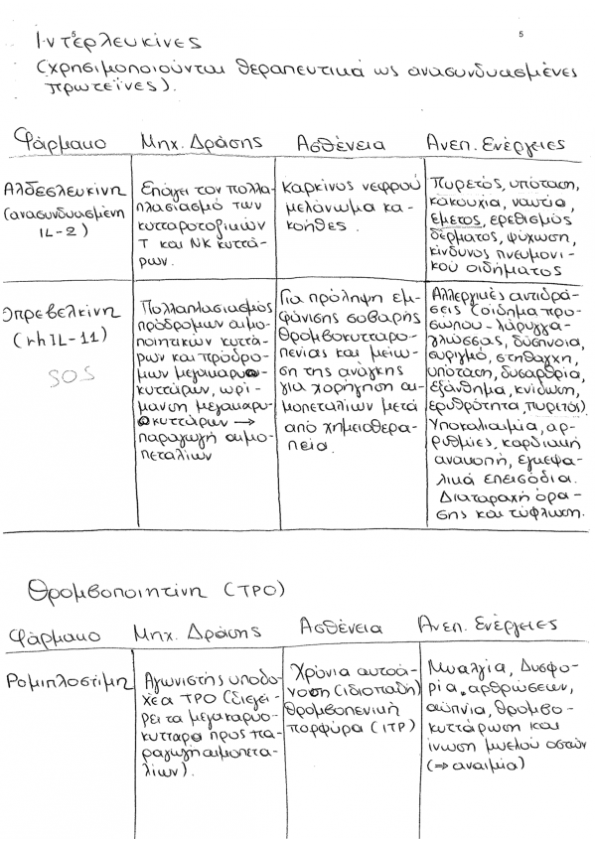 5
Ιντερλευκίνες
(χρησιμοποιούνται θεραπευτικά ως ανασυνδυασμένες
πρωτεΐνες).
Φάρμακο
Μηχ. Δράσης
Ασθένεια
Ανεπ. Ενέργειες
Αλδεσλευκίνη
(ανασυνδυασμένη
IL-2)
Επάγει τον πολλα-
πλασιασμό των
κυτταροτοξικών
Τ και ΝΚ κυττά-
ρων.
Καρκίνος νεφρού
μελάνωμα κα-
κοήθες.
Πυρετός, υπόταση,
κακουχία, ναυτία,
έμετος, ερεθισμός
δέρματος, ψύχωση,
κίνδυνος πνευμονι-
κού οιδήματος
Οπρεβελκίνη
(rhIL-11)
SOS
Πολλαπλασιασμός
πρόδρομων αιμο-
ποιητικών κυττά-
ρων και πρόδρο-
μων μεγακαρυο-
κυττάρων, ωρί-
μανση μεγακαρυ-
οκυττάρων →
παραγωγή αιμο-
πεταλίων
Για πρόληψη εμ-
φάνισης σοβαρής
θρομβοκυτταρο-
πενίας και μείω-
ση της ανάγκης
για χορήγηση αι-
μοπεταλίων μετά
από χημειοθερα-
πεία.
Αλλεργικές αντιδρά-
σεις (οίδημα προ-
σώπου - λάρυγγα-
γλώσσας, δύσπνοια,
συριγμό, στηθάγχη,
υπόταση, δυσαρθρία,
εξάνθημα, κνίδωση,
ερυθρότητα, πυρετός).
Υποκαλιαιμία, αρ-
ρυθμίες, καρδιακή
ανακοπή, εγκεφα-
λικά επεισόδια.
Διαταραχή όρα-
σης και τύφλωση.
Θρομβοποιητίνη (TPO)
Φάρμακο
Μηχ. Δράσης
Ασθένεια
Ανεπ. Ενέργειες
Ρομιπλοστίμη
Αγωνιστής υποδο-
χέα TPO (διεγεί-
ρει τα μεγακαρυο-
κύτταρα προς πα-
ραγωγή αιμοπετα-
λίων).
Χρόνια αυτοά-
νοση (ιδιοπαθή)
θρομβοπενική
πορφύρα (ITP)
Μυαλγία, Δυσφο-
ρία, αρθρώσεων,
αϋπνία, θρομβο-
κυττάρωση και
ίνωση μυελού οστών
(⇒ αναιμία)